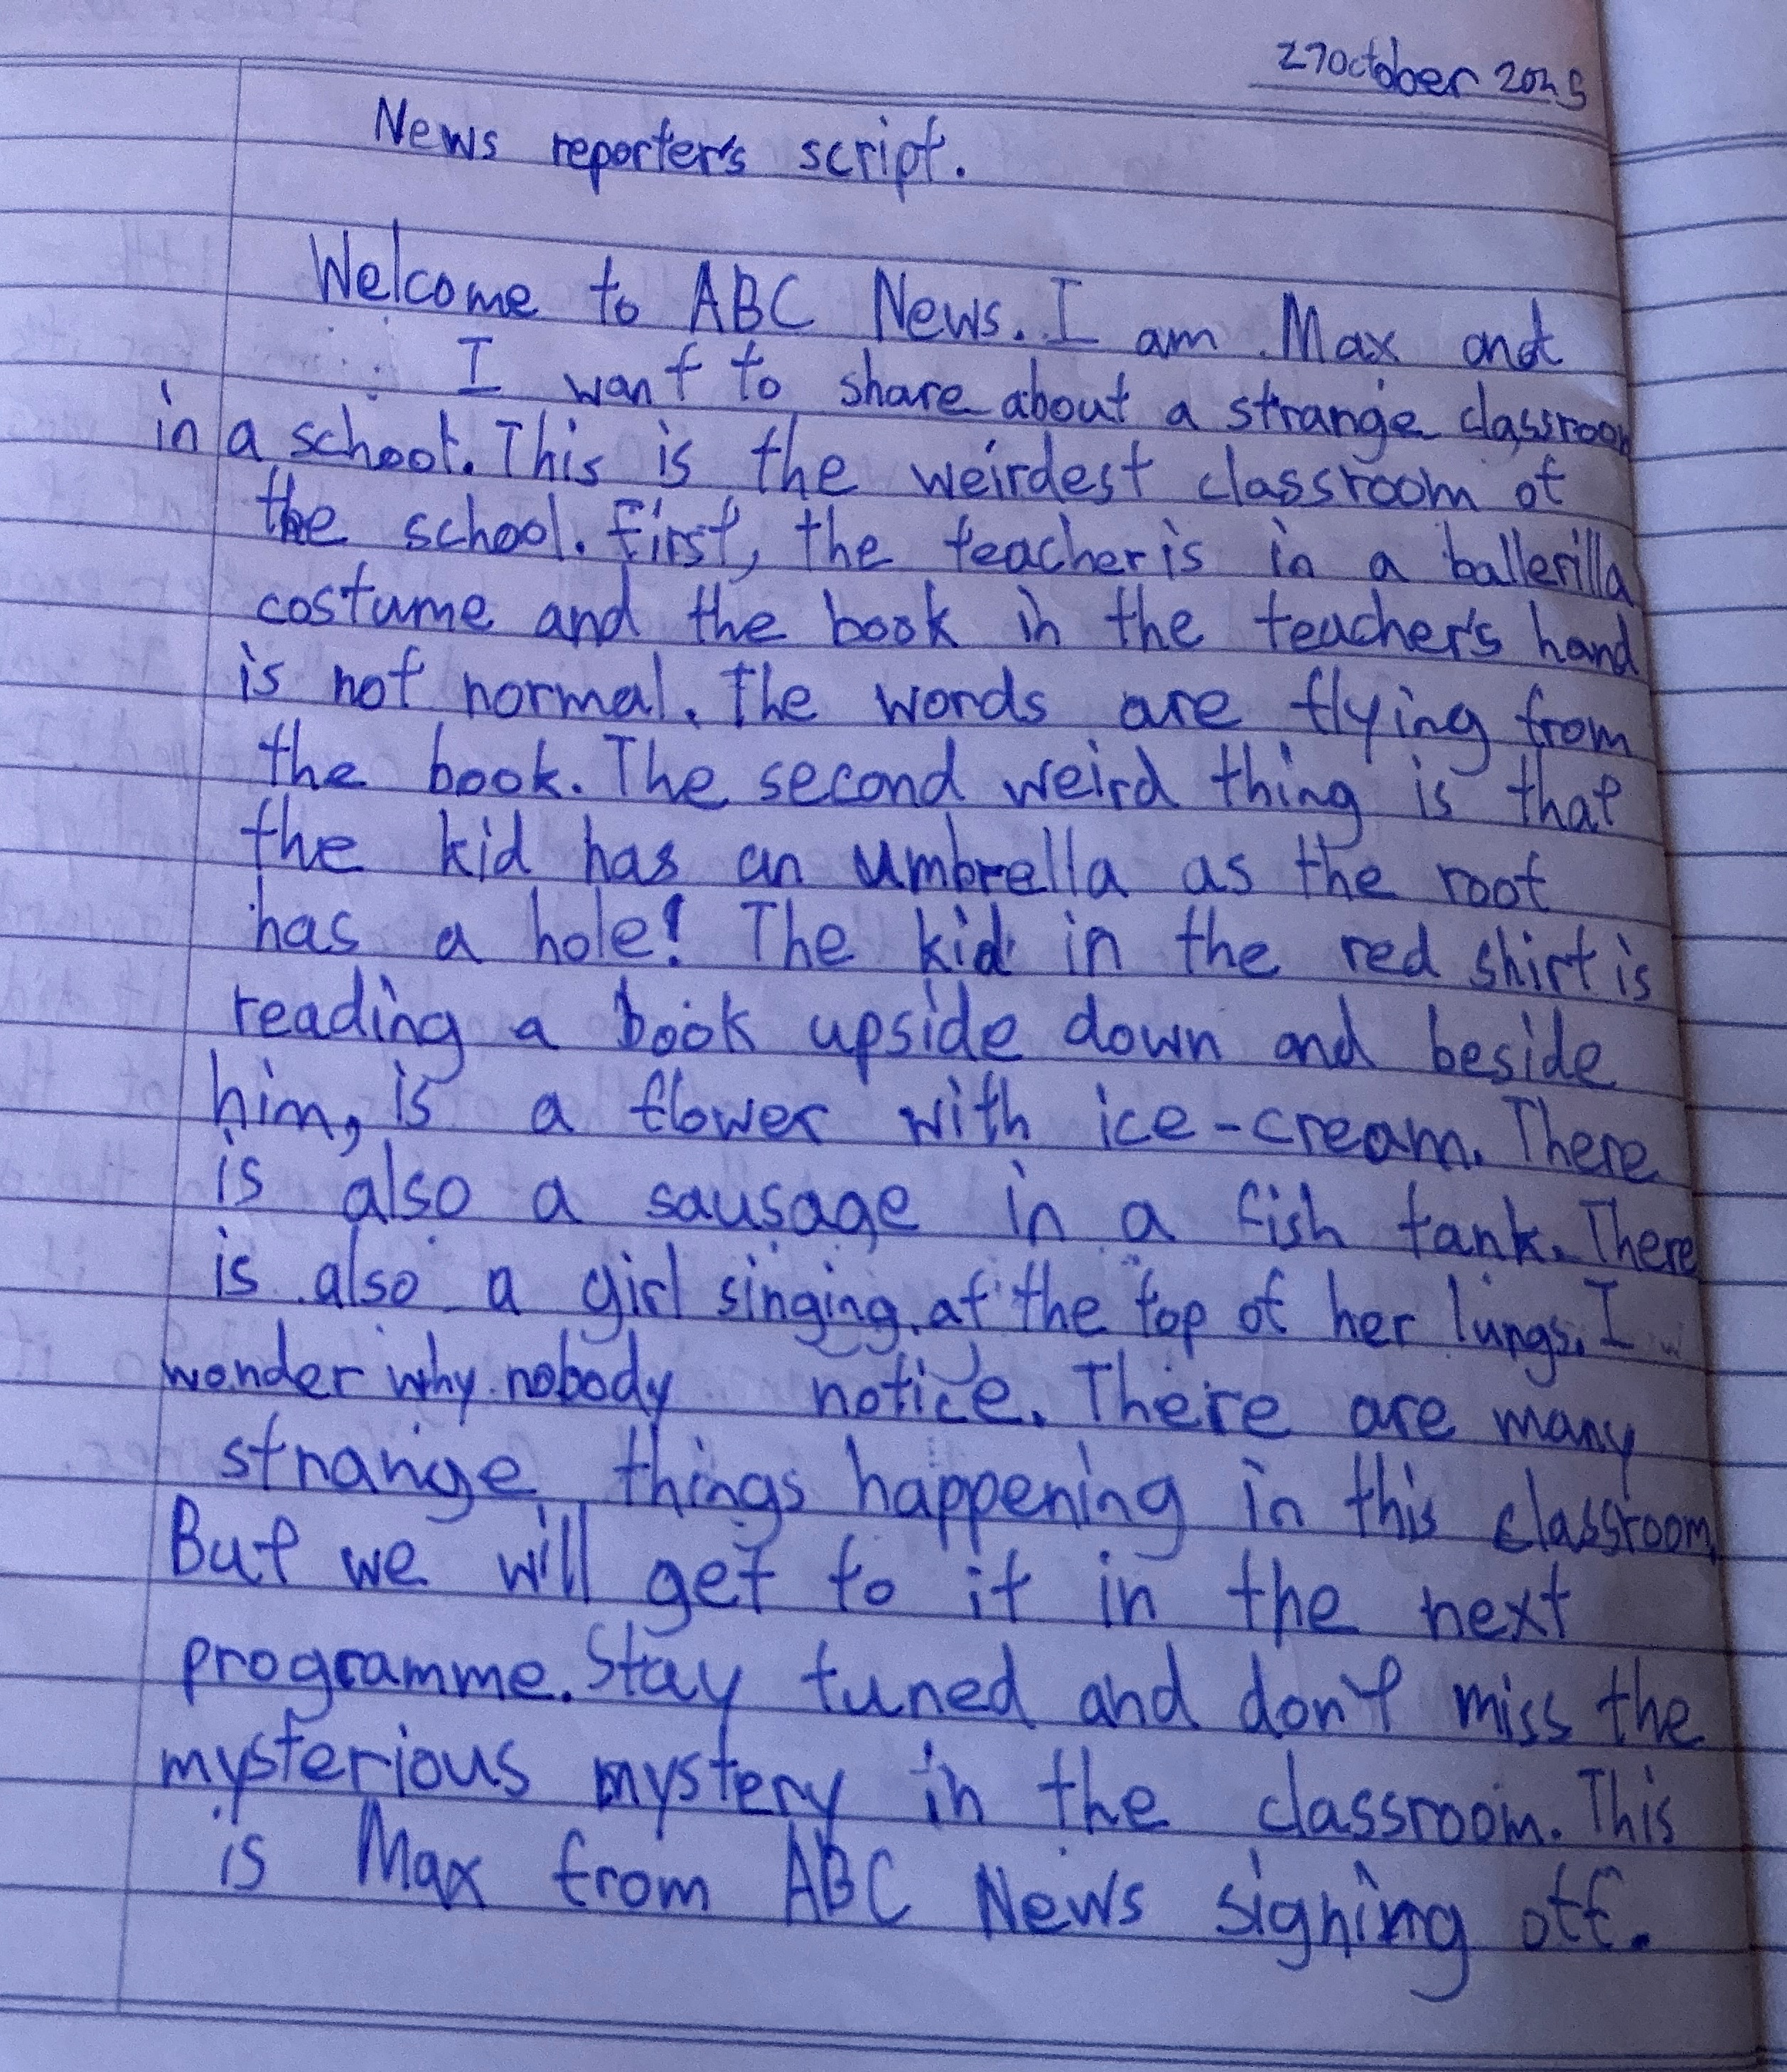 27 October 2025
News reporter's script.
Welcome to ABC News. I am Max and
I want to share about a strange classroom
in a school. This is the weirdest classroom of
the school. First, the teacher is in a ballerilla
costume and the book in the teacher's hand
is not normal. The words are flying from
the book. The second weird thing is that
the kid has an umbrella as the roof
has a hole! The kid in the red shirt is
reading a book upside down and beside
him, is a flower with ice-cream. There
is also a sausage in a fish tank. There
is also a girl singing at the top of her lungs. I
wonder why nobody notice. There are many
strange things happening in this classroom.
But we will get to it in the next
programme. Stay tuned and don't miss the
mysterious mystery in the classroom. This
is Max from ABC News signing off.